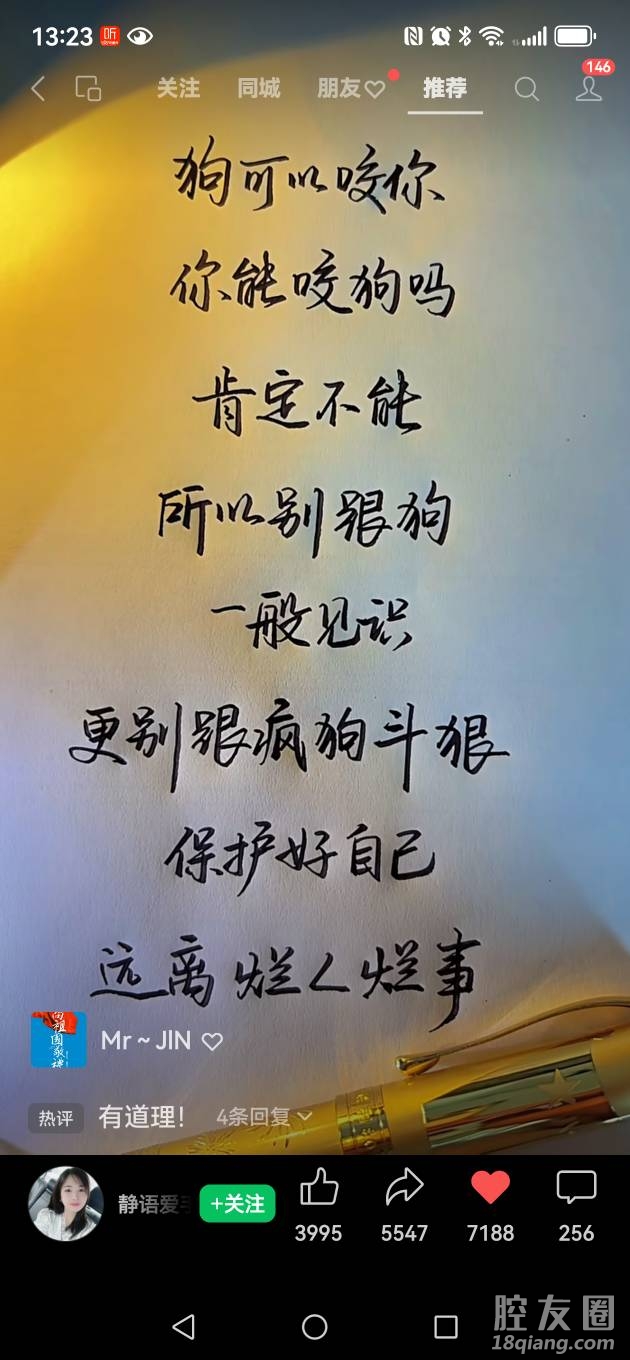 13:23
146
关注 同城 朋友 推荐
狗可以咬你
你能咬狗吗
肯定不能
所以别跟狗
一般见识
更别跟疯狗斗狠
保护好自己
远离烂人烂事
向祖国敬礼
Mr~JIN
热评 有道理! 4条回复
静语爱 +关注
3995 5547 7188 256
腔友圈
18qiang.com